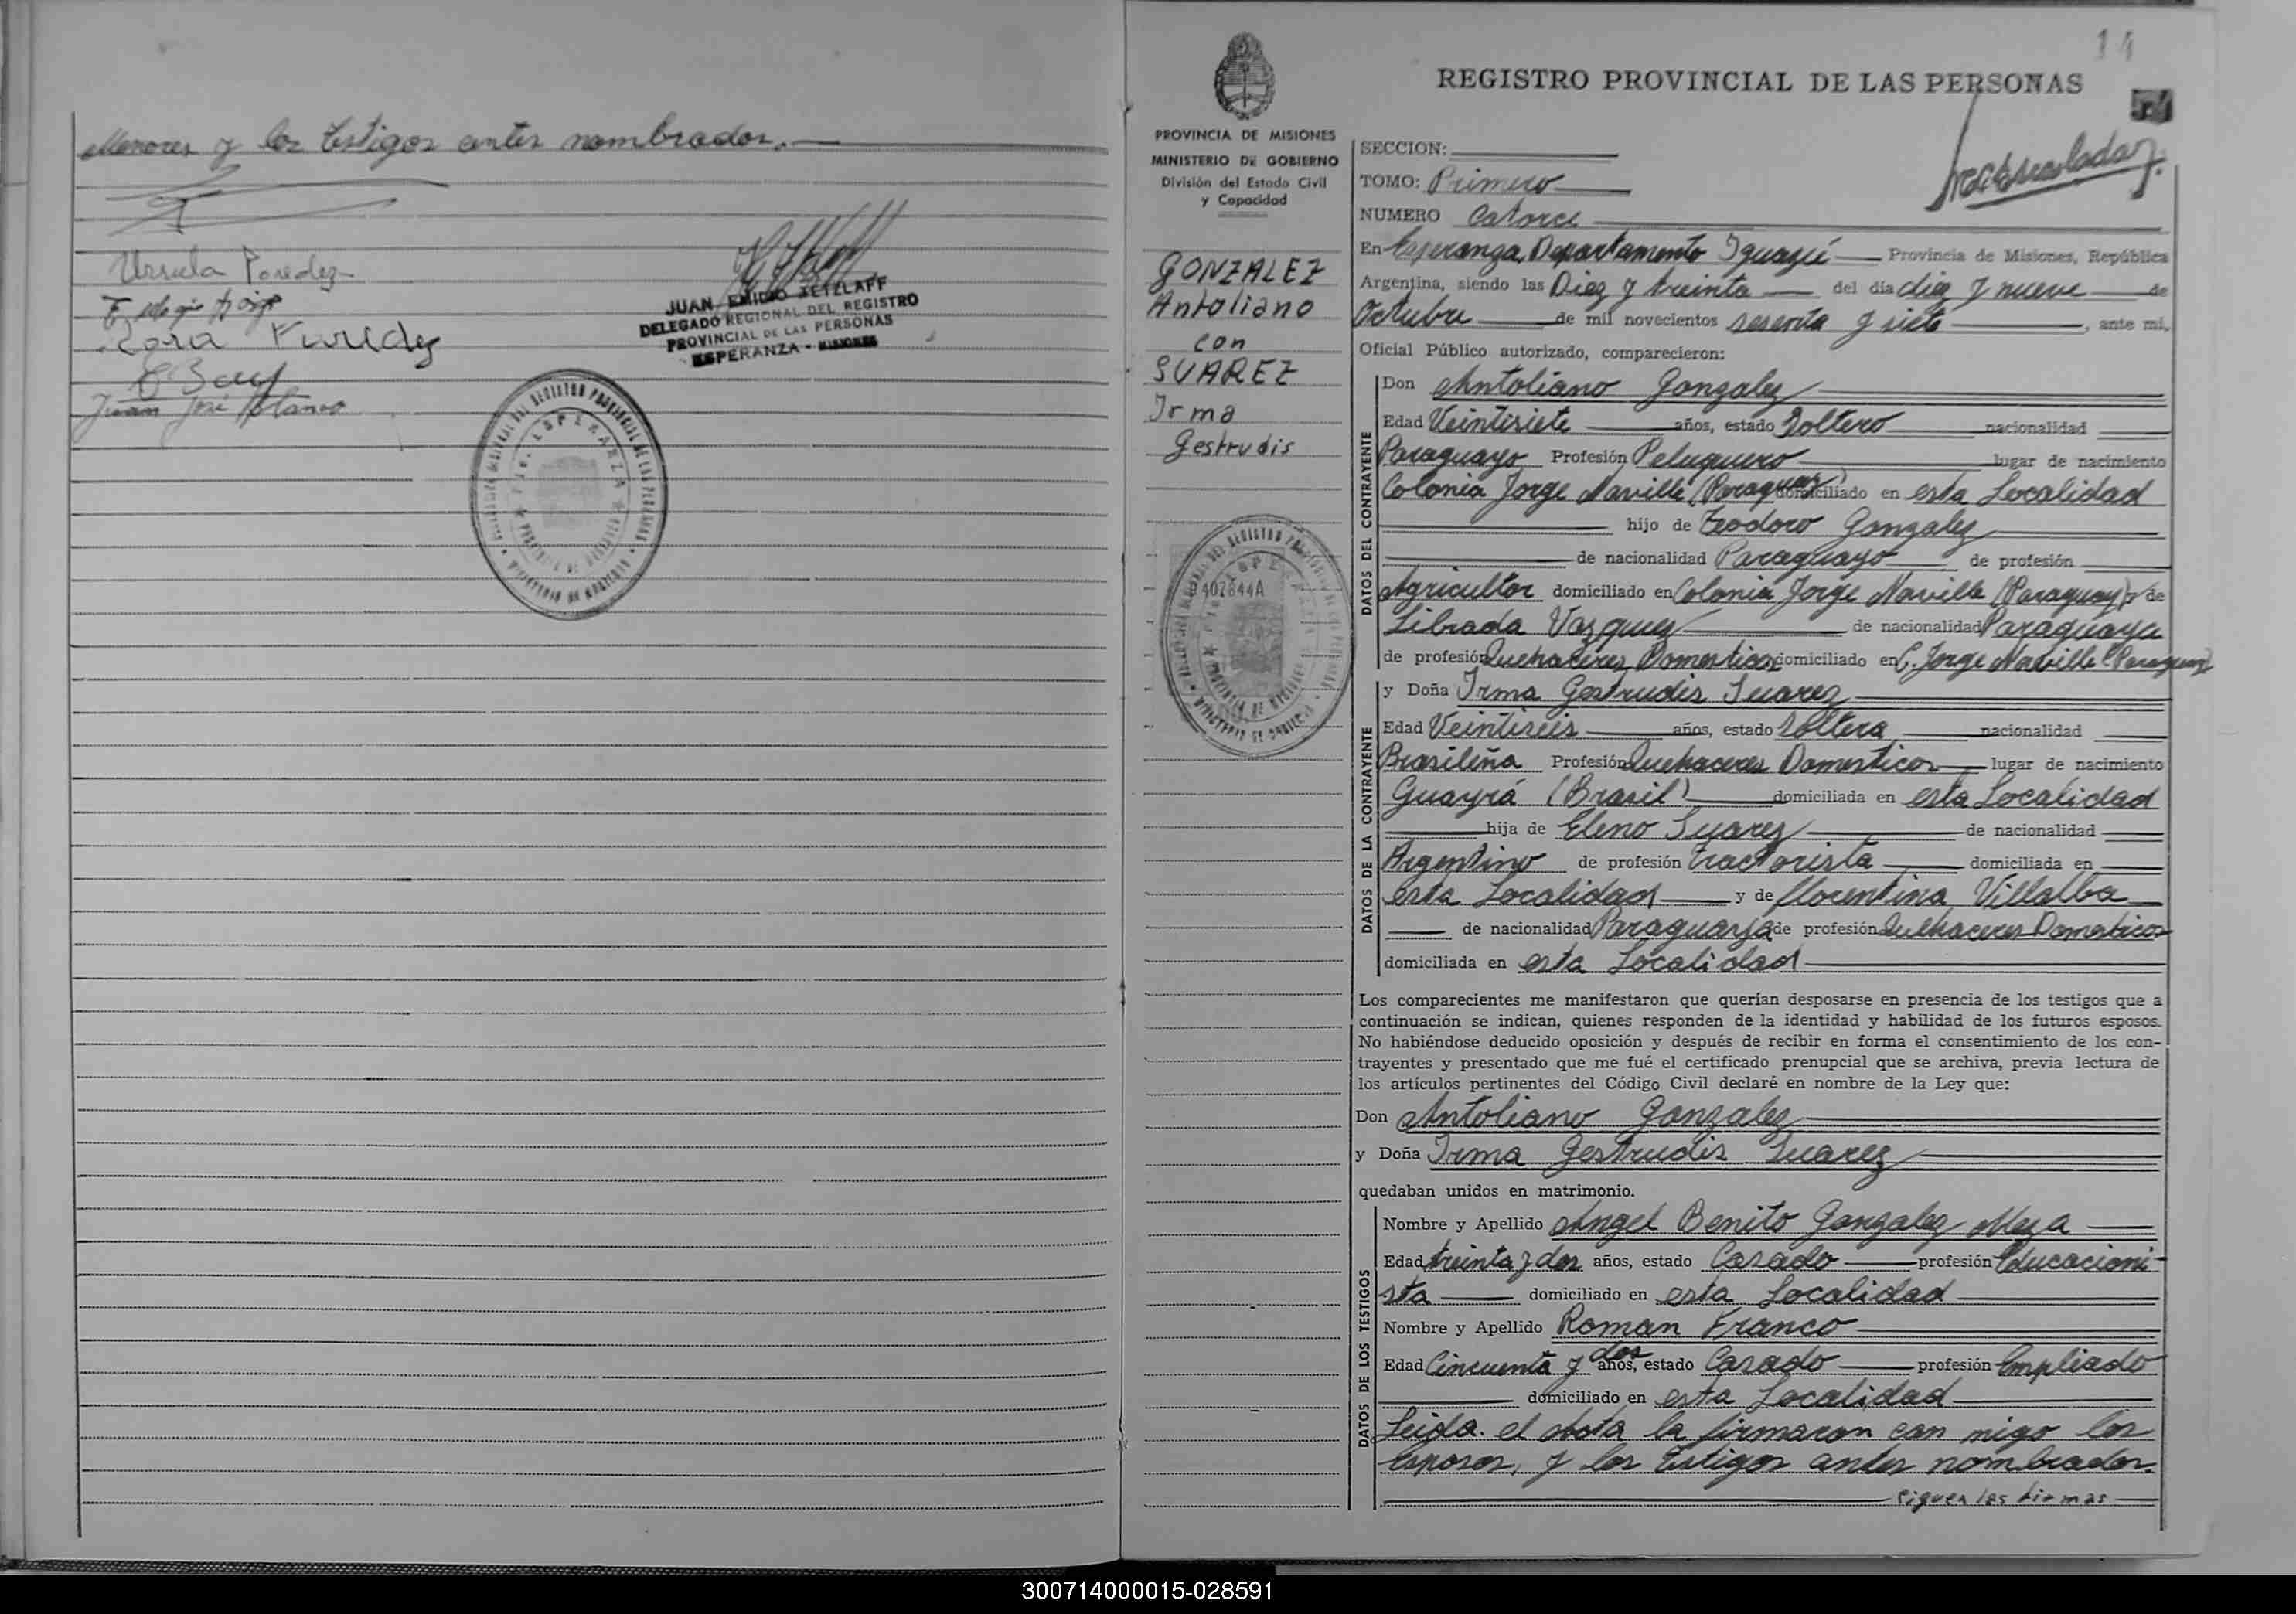 Menores y los testigos antes nombrados.
Ursula Paredez
Juan José Blanco
JUAN EMIDIO JETZLAFF
DELEGADO REGIONAL DEL REGISTRO
PROVINCIAL DE LAS PERSONAS
ESPERANZA - MISIONES
14
REGISTRO PROVINCIAL DE LAS PERSONAS
PROVINCIA DE MISIONES
MINISTERIO DE GOBIERNO
División del Estado Civil
y Capacidad
GONZALEZ
Antoliano
con
SUAREZ
Irma
Gestrudis
407844A
SECCION:
TOMO: Primero
NUMERO Catorce
En Esperanza, Departamento Iguazú Provincia de Misiones, República
Argentina, siendo las Diez y treinta del día diez y nueve de
Octubre de mil novecientos sesenta y siete, ante mi,
Oficial Público autorizado, comparecieron:
DATOS DEL CONTRAYENTE
Don Antoliano Gonzalez
Edad Veintisiete años, estado Soltero nacionalidad
Paraguayo Profesión Peluquero lugar de nacimiento
Colonia Jorge Naville (Paraguay) domiciliado en esta Localidad
hijo de Teodoro Gonzalez
de nacionalidad Paraguayo de profesión
Agricultor domiciliado en Colonia Jorge Naville (Paraguay) y de
Librada Vazquez de nacionalidad Paraguaya
de profesión Quehaceres Domesticos domiciliado en C. Jorge Naville (Paraguay)
DATOS DE LA CONTRAYENTE
y Doña Irma Gestrudis Suarez
Edad Veintiseis años, estado Soltera nacionalidad
Brasileña Profesión Quehaceres Domesticos lugar de nacimiento
Guayrá (Brasil) domiciliada en esta Localidad
hija de Eleno Suarez de nacionalidad
Argentino de profesión tractorista domiciliada en
esta Localidad y de Florentina Villalba
de nacionalidad Paraguaya de profesión Quehaceres Domesticos
domiciliada en esta Localidad
Los comparecientes me manifestaron que querían desposarse en presencia de los testigos que a
continuación se indican, quienes responden de la identidad y habilidad de los futuros esposos.
No habiéndose deducido oposición y después de recibir en forma el consentimiento de los con-
trayentes y presentado que me fué el certificado prenupcial que se archiva, previa lectura de
los artículos pertinentes del Código Civil declaré en nombre de la Ley que:
Don Antoliano Gonzalez
y Doña Irma Gestrudis Suarez
quedaban unidos en matrimonio.
DATOS DE LOS TESTIGOS
Nombre y Apellido Angel Benito Gonzalez Meza
Edad treinta y dos años, estado Casado profesión Educacioni-
sta domiciliado en esta Localidad
Nombre y Apellido Roman Franco
Edad Cincuenta y dos años, estado Casado profesión Empliado
domiciliado en esta Localidad
Leida. el Acta la firmaron con migo los
Esposos, y los testigos antes nombrados.
siguen las firmas
300714000015-028591